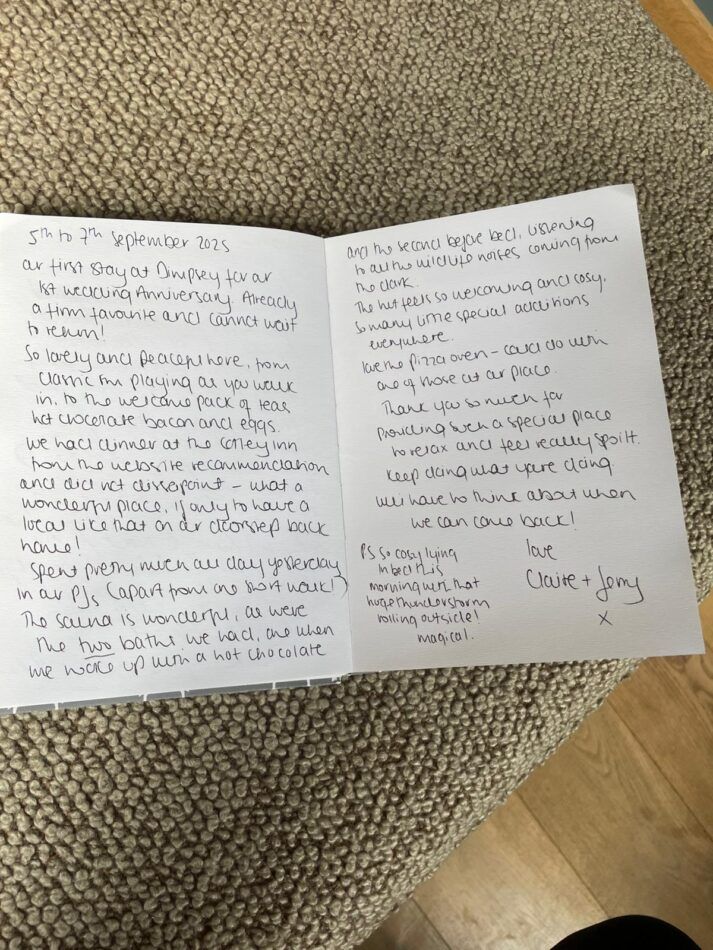 5th to 7th September 2025
our first stay at Dimpsey for our
1st wedding Anniversary. Already
a firm favourite and cannot wait
to return!
So lovely and peaceful here, from
Classic fm playing as you walk
in, to the welcome pack of teas
hot chocolate bacon and eggs.
We had dinner at the Cotley inn
from the website recommendation
and did not dissapoint - what a
wonderful place, if only to have a
local like that on our doorstep back
home!
Spent pretty much all day yesterday
in our PJs (apart from one short walk!)
The sauna is wonderful, as were
the two baths we had, one when
we woke up with a hot chocolate
and the second before bed, listening
to all the wildlife noises coming from
the dark.
The hut feels so welcoming and cosy,
so many little special additions
everywhere.
love the pizza oven - could do with
one of those at our place.
Thank you so much for
providing such a special place
to relax and feel really spoilt.
Keep doing what you're doing.
will have to think about when
we can come back!
love
Claire + Jerry
x
PS so cosy lying
in bed this
morning with that
huge thunderstorm
rolling outside!
magical.